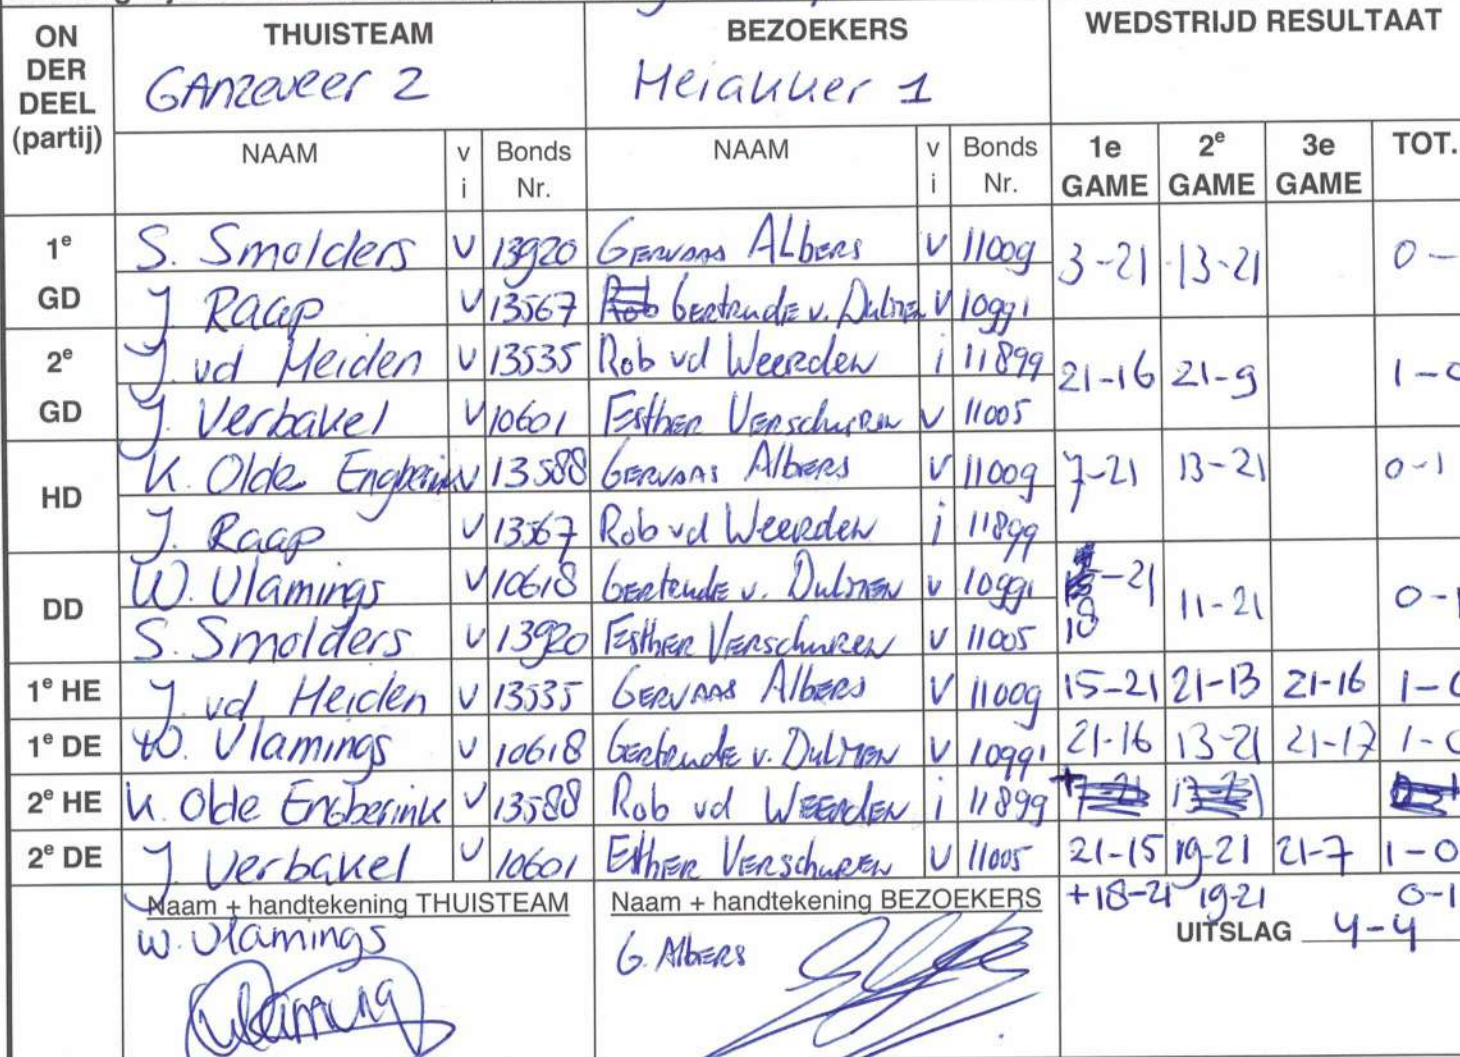 ON DER DEEL (partij) THUISTEAM BEZOEKERS WEDSTRIJD RESULTAAT
GANzeveer 2 Heiakker 1
NAAM v i Bonds Nr. NAAM v i Bonds Nr. 1e GAME 2e GAME 3e GAME TOT.
1e GD S. Smolders v 13920 Gervaas Albers v 11009 3-21 13-21 0-
J. Raap v 13567 Gertrude v. Dulmen v 10991
2e GD J. vd Heiden v 13535 Rob vd Weerden i 11899 21-16 21-9 1-0
J. Verbakel v 10601 Esther Verschuren v 11005
HD K. Olde Engberink v 13588 Gervaas Albers v 11009 7-21 13-21 0-1
J. Raap v 13567 Rob vd Weerden i 11899
DD W. Vlamings v 10618 Gertrude v. Dulmen v 10991 18-21 11-21 0-1
S. Smolders v 13920 Esther Verschuren v 11005
1e HE J. vd Heiden v 13535 Gervaas Albers v 11009 15-21 21-13 21-16 1-0
1e DE W. Vlamings v 10618 Gertrude v. Dulmen v 10991 21-16 13-21 21-17 1-0
2e HE K. Olde Engberink v 13588 Rob vd Weerden i 11899 +
2e DE J. Verbakel v 10601 Esther Verschuren v 11005 21-15 19-21 21-7 1-0
Naam + handtekening THUISTEAM Naam + handtekening BEZOEKERS +18-21 19-21 0-1
W. Vlamings G. Albers UITSLAG 4-4